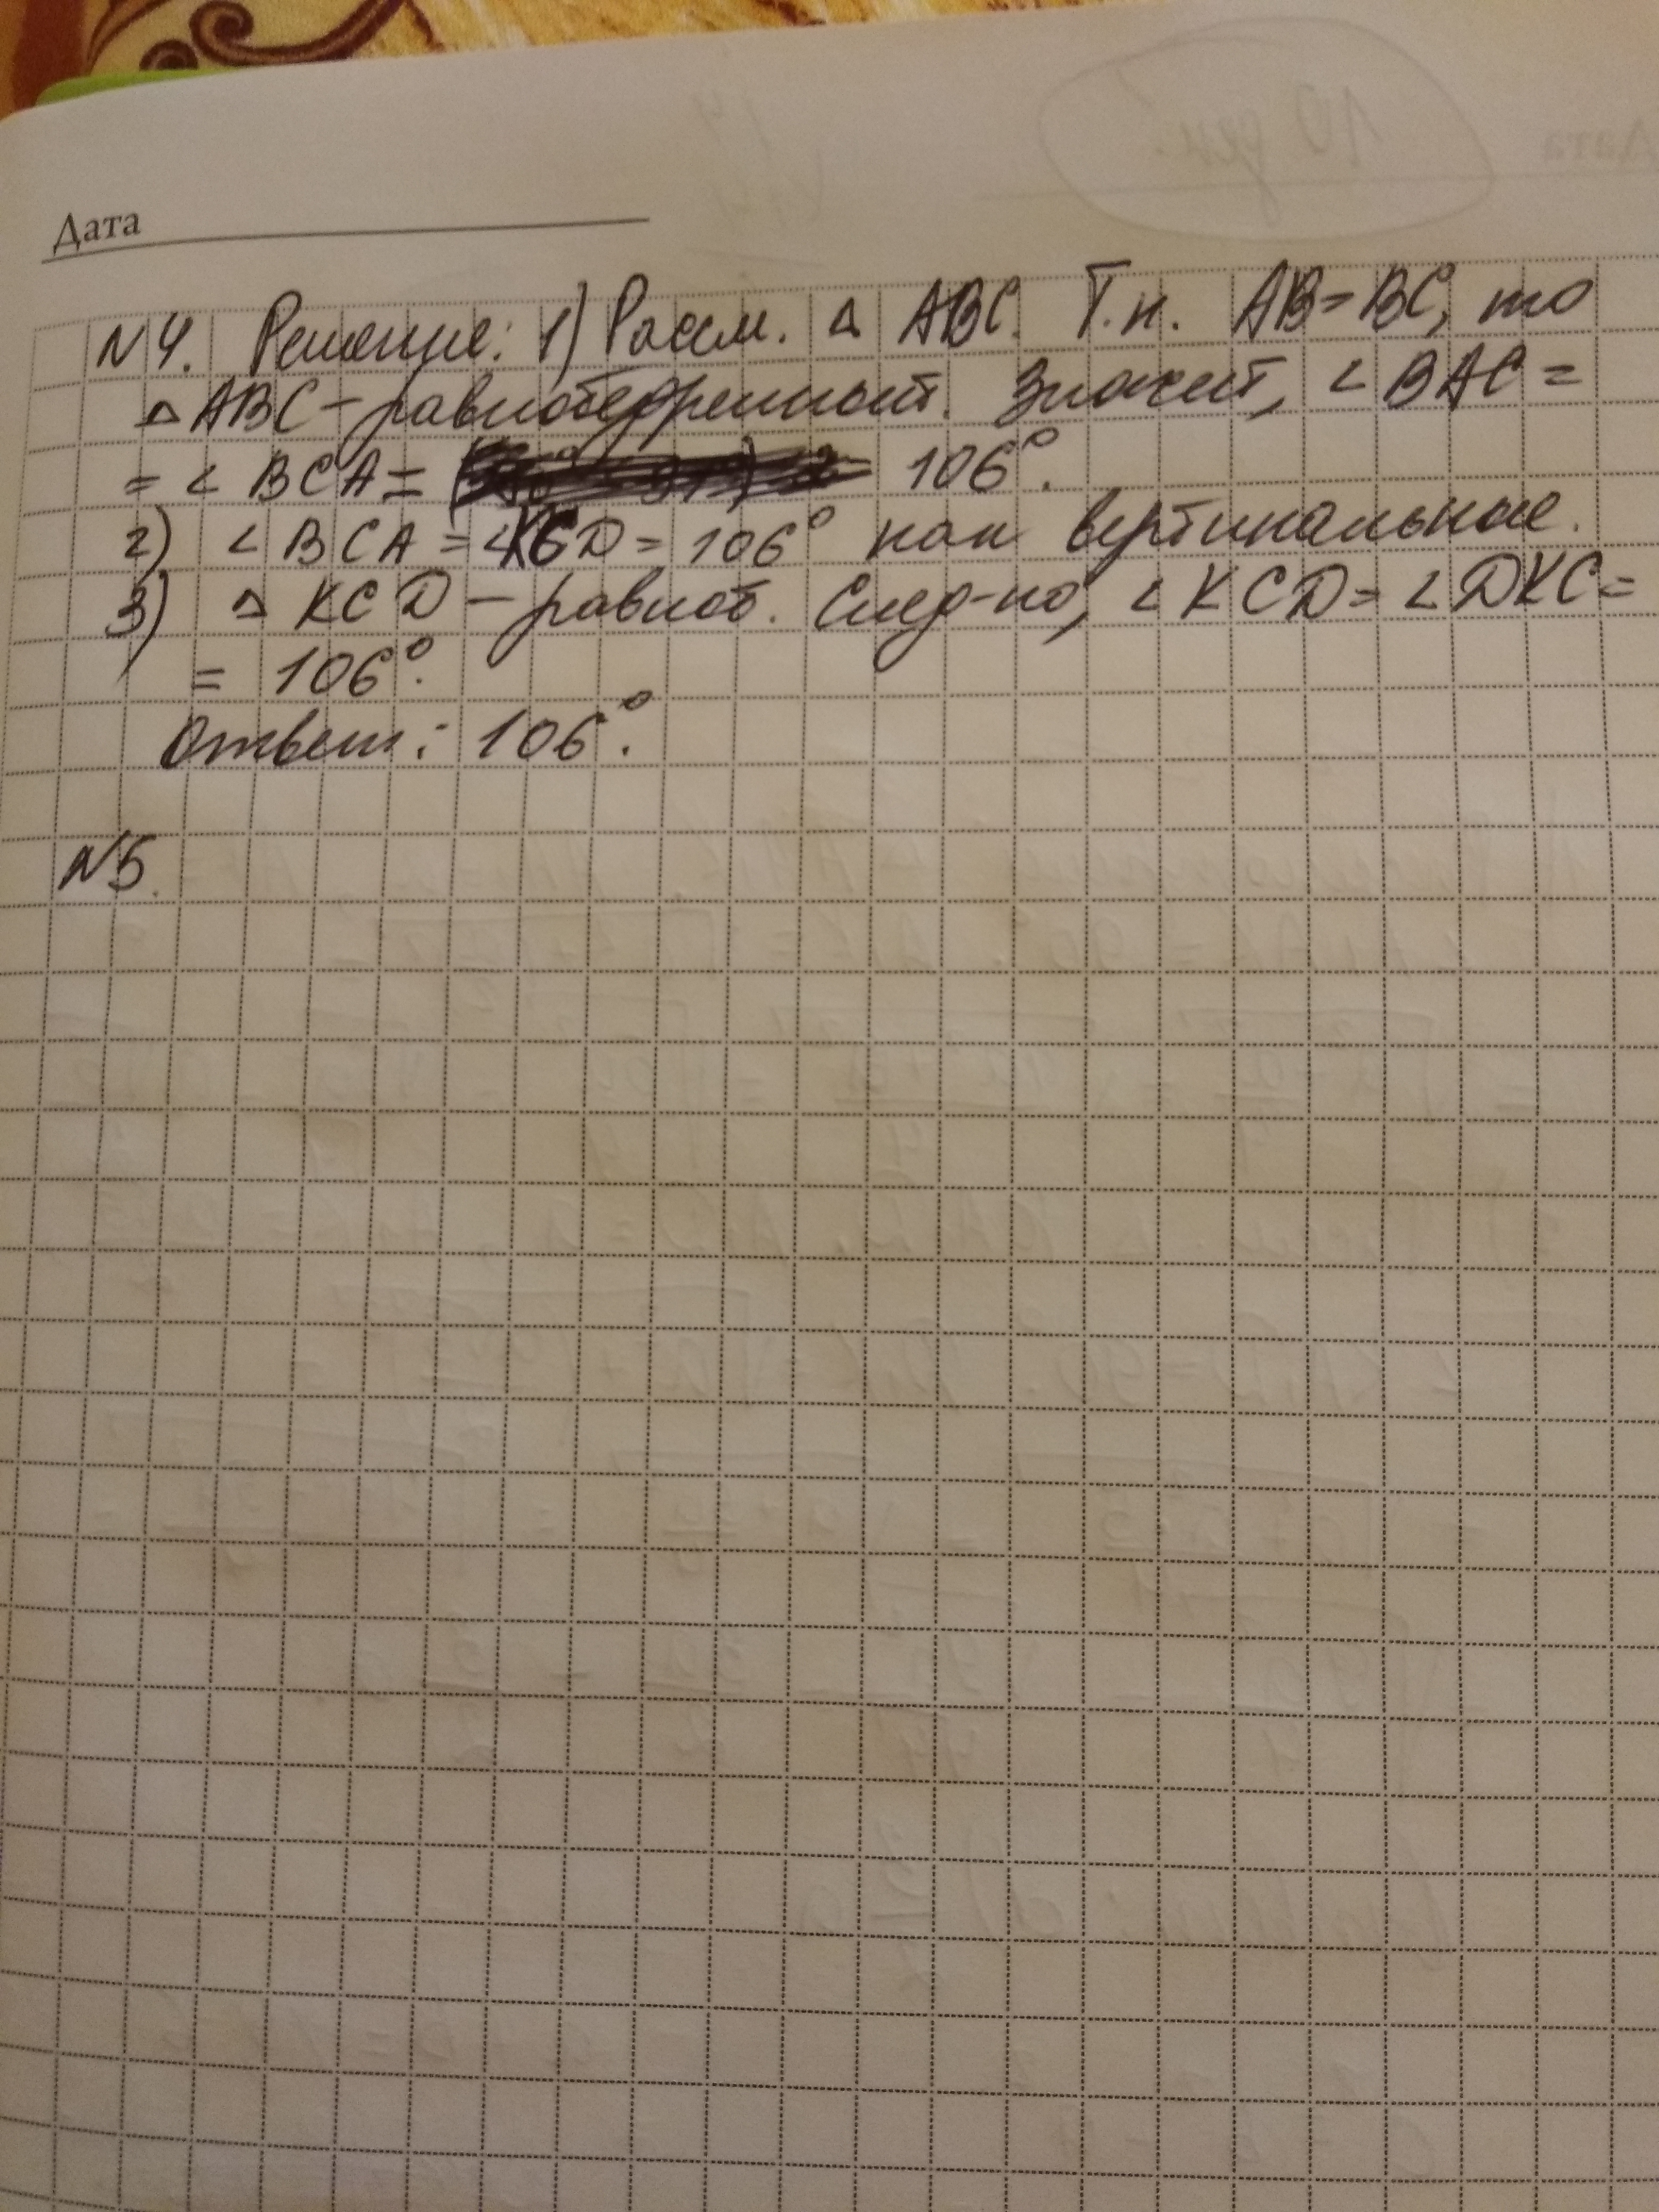 Дата
N4. Решение: 1) Рассм. △ ABC. Т.к. AB=BC, то
△ ABC - равнобедренный. Значит, ∠ BAC =
= ∠ BCA = 106°.
2) ∠ BCA = ∠KCD = 106° как вертикальные.
3) △ KCD - равноб. След-но, ∠ KCD = ∠ DKC =
= 106°.
Ответ: 106°.
N5.